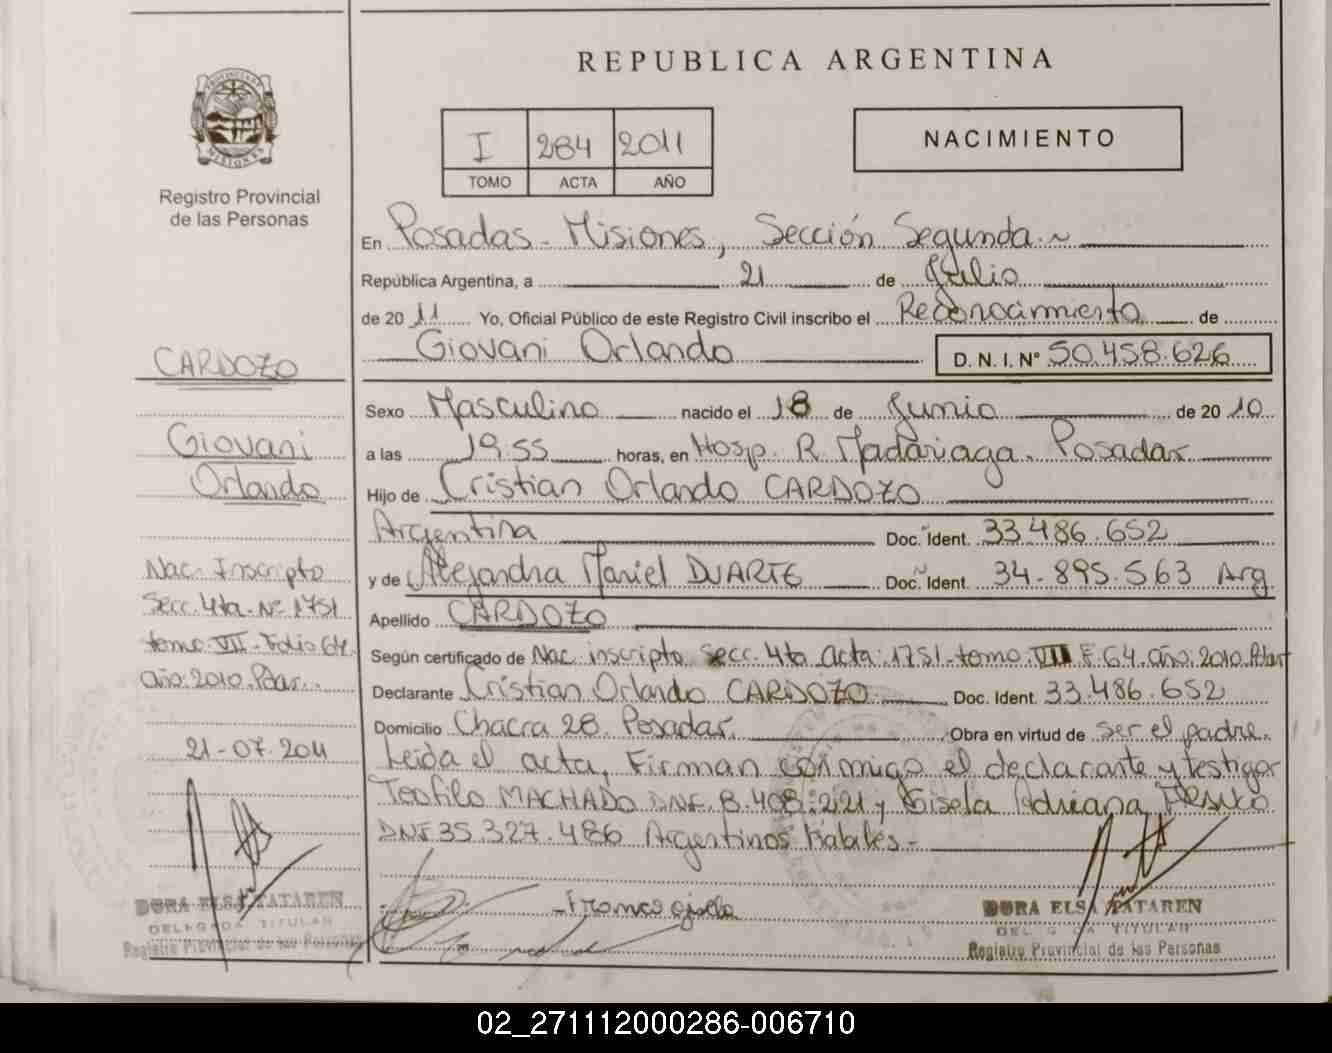 REPUBLICA ARGENTINA
PROVINCIA DE
MISIONES
Registro Provincial
de las Personas
I 284 2011
TOMO ACTA AÑO
NACIMIENTO
En Posadas - Misiones, Sección Segunda.~
República Argentina, a 21 de Julio
de 20 11 Yo, Oficial Público de este Registro Civil inscribo el Reconocimiento de
Giovani Orlando D. N. I. Nº 50.458.626
Sexo Masculino nacido el 18 de Junio de 20 10
a las 19.55 horas, en Hosp. R. Madariaga. Posadas
Hijo de Cristian Orlando CARDOZO
Argentina Doc. Ident. 33.486.652
y de Alejandra Mariel DUARTE Doc. Ident. 34.895.563 Arg.
Apellido CARDOZO
Según certificado de Nac. inscripto Secc. 4ta Acta: 1751. tomo VII F. 64. año. 2010. Pdas
Declarante Cristian Orlando CARDOZO Doc. Ident. 33.486.652
Domicilio Chacra 28. Posadas. Obra en virtud de ser el padre.
Leida el acta, Firman conmigo el declarante y testigos
Teofilo MACHADO DNI. 8.408.221 y Gisela Adriana
DNI 35.327.486 Argentinos habiles.-
CARDOZO
Giovani
Orlando
Nac. Inscripto
Secc. 4ta. Nº 1751
tomo VII - Folio 64.
año. 2010. Pdas.
21-07.2011
DORA ELSA TATAREN
DELEGADA TITULAR
Registro Provincial de las Personas
DORA ELSA TATAREN
DELEGADA TITULAR
Registro Provincial de las Personas
02_271112000286-006710